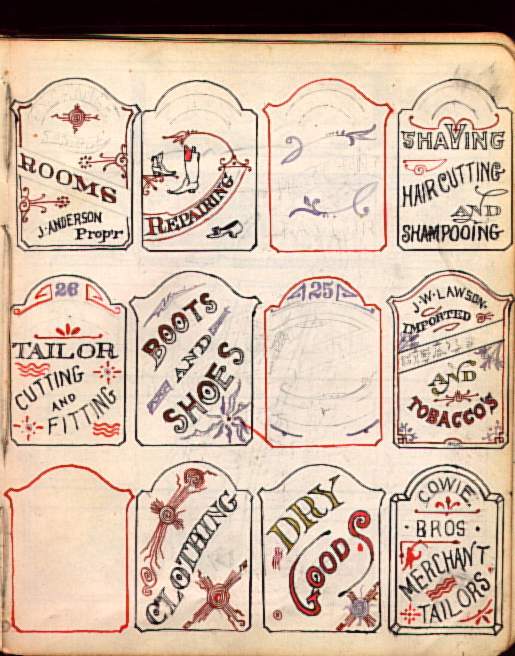 ROOMS
J. ANDERSON
Prop'r
REPAIRING
SHAVING
HAIR CUTTING
AND
SHAMPOOING
26
TAILOR
CUTTING
AND
FITTING
BOOTS
AND
SHOES
25
J. W. LAWSON
IMPORTED
CIGARS
AND
TOBACCO'S
CLOTHING
DRY
GOODS
COWIE
BROS
MERCHANT
TAILORS